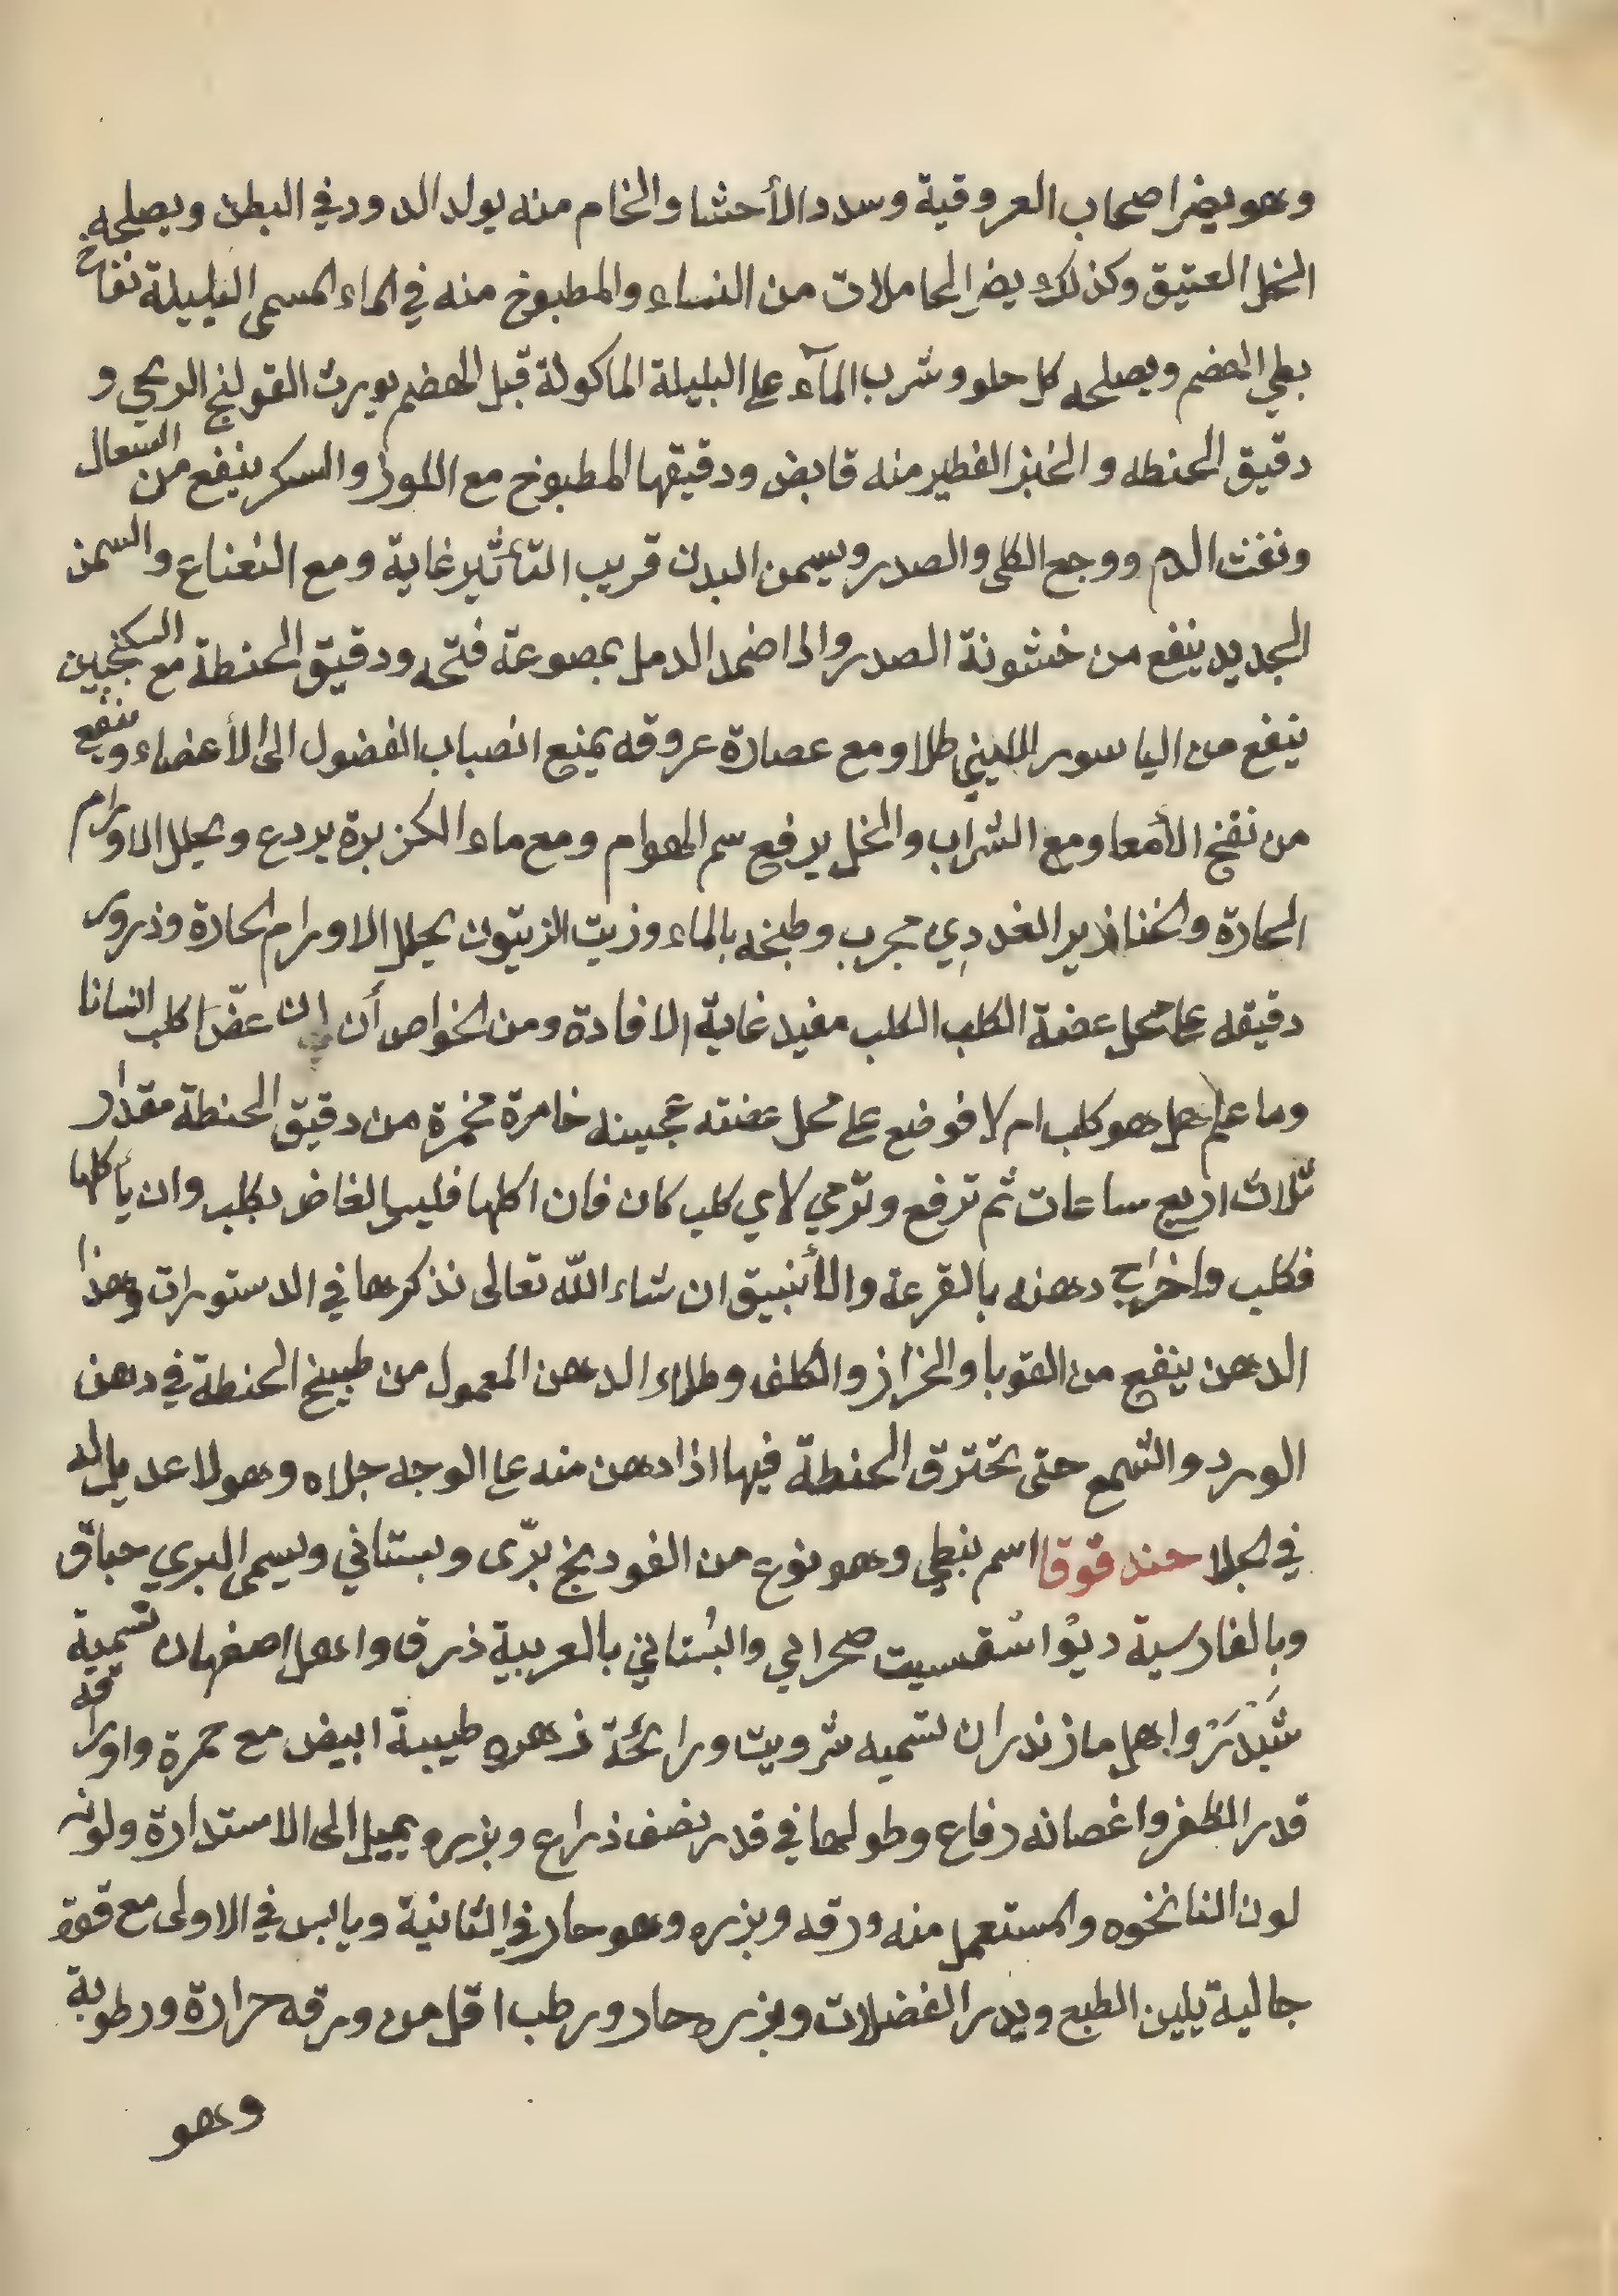 وهو يضر اصحاب العروقية وسدد الأحشا والخام منه يولد الدود في البطن ويصلحه
الخل العتيق وكذلك يضر الحاملات من النساء والمطبوخ منه في الماء المسمى البليلة نفاخ
بطي الهضم ويصلحه كل حلو وشرب المآء على البليلة الماكولة قبل الهضم يورث القولنج الريحي و
دقيق الحنطه والخبز الفطير منه قابض ودقيقها المطبوخ مع اللوز والسكر ينفع من السعال
ونفث الدم ووجع الكلى والصدر ويسمن البدن قريب التأثير غاية ومع النعناع والسمن
الجديد ينفع من خشونة الصدر واذا ضمد الدمل بمصوعة فتحه ودقيق الحنطة مع السكنجبين
ينفع من الياسور اللبني طلا ومع عصارة عروقه يمنع انصباب الفضول الى الأعضاء وينفع
من نفخ الأمعا ومع الشراب والخل يرفع سم الهوام ومع ماء الكزبرة يردع ويحلل الاورام
الحادة والخنازير الغددي مجرب وطبخه بالماء وزيت الزيتون يحلل الاورام الحادة وذرور
دقيقه على محل عضة الكلب الكلب مفيد غاية الافادة ومن الخواص أن إن عضّ كلب انسانا
وما علم هل هو كلب ام لا فوضع على محل عضته عجينه خامرة مخمرة من دقيق الحنطة مقدار
ثلاث اربع ساعات ثم ترفع وترمي لاي كلب كان فان اكلها فليس الغاض بكلب وان يأكلها
فكلب واخراج دهنه بالقرعة والأنبيق ان شاء الله تعالى نذكرها في الدستورات وهذا
الدهن ينفع من القوبا والحزاز والكلف وطلاء الدهن المعمول من طبيخ الحنطة في دهن
الورد والشمع حتى تحترق الحنطة فيها اذا دهن منه على الوجه جلاه وهو لا عديل له
في الجلا حندقوقا اسم نبطي وهو نوع من الفودينج برّى وبستاني ويسمى البري حباقى
وبالفارسية ديو اسقسيت صحرايي والبستاني بالعربية ذرق واهل اصفهان تسميه
شبدر واهل مازندران تسميه شرويت ورائحة زهره طيبة ابيض مع حمرة واوراقه
قدر الظفر واغصانه رفاع وطولها في قدر نصف ذراع وبزره يميل الى الاستدارة ولونه
لون النانخوه والمستعمل منه ورقه وبزره وهو حار في الثانية ويابس في الاولى مع قوة
جالية يلين الطبع ويدر الفضلات وبزره حار ورطب اقل من ورقه حرارة ورطوبة
وهو